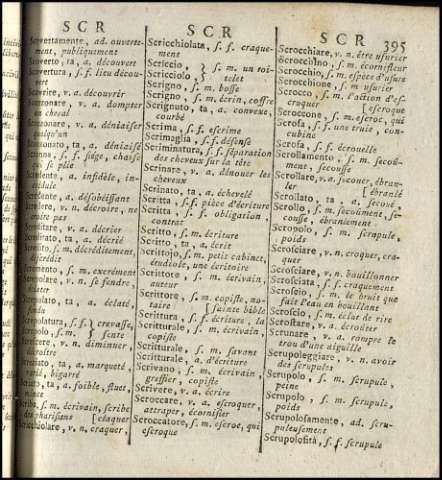 SCR
SCR
SCR 395
ad. ouvertement, publiquement
ta, a. découvert
s. f. lieu découvert
v. a. découvrir
v. a. dompter
un cheval
v. a. déniaiser
quelqu'un
ta, a. déniaisé
s. f. siége, chaise
se plie
a. infidèle, incrédule
a. désobéissant
v. n. décroire, ne
croire pas
v. a. décrier
ta, a. décrié
s. m. décréditement,
discrédit
s. m. excrément
v. n. se fendre,
ta, a. éclaté,
fendu
s. f. crevasse,
s. m. fente
v. n. diminuer
ta, a. marqueté,
bigarré
ta, a. foible, fluet,
s. m. écrivain, scribe
[claquer
v. n. craquer,
Scricchiolata, s. f. craquement
Scriccio, } s. m. un roi-
Scricciolo } telet
Scrigno, s. m. bosse
Scrigno, s. m. écrin, coffre
Scrignuto, ta, a. convexe,
courbé
Scrima, s. f. escrime
Scrimaglia, s. f. défense
Scriminatura, s. f. séparation
des cheveux sur la tête
Scrinare, v. a. dénouer les
cheveux
Scrinato, ta, a. échevelé
Scritta, s. f. pièce d'écriture
Scritta, s. f. obligation,
contrat
Scritto, s. m. écriture
Scritto, ta, a. écrit
Scrittojo, s. m. petit cabinet,
étudiole, une écritoire
Scrittore, s. m. écrivain,
auteur
Scrittore, s. m. copiste, notaire
[sainte bible
Scrittura, s. f. écriture, la
Scritturale, s. m. écrivain,
copiste
Scritturale, s. m. savant
Scritturale, a. d'écriture
Scrivano, s. m. écrivain,
greffier, copiste
Scrivere, v. a. écrire
Scroccare, v. a. escroquer,
attraper, écornifler
Scroccatore, s. m. escroc, qui
escroque
Scrocchiare, v. n. être usurier
Scrocchino, s. m. écornifleur
Scrocchio, s. m. espèce d'usure
Scrocchione, s. m. usurier
Scrocco, s. m. l'action d'es-
croquer [escroque
Scroccone, s. m. escroc, qui
Scrofa, s. f. une truie, con-
cubine
Scrofa, s. f. écrouelle
Scrollamento, s. m. secoue-
ment, secousse
Scrollare, v. a. secouer, ébran-
ler [ébranlé
Scrollato, ta, a. secoué,
Scrollo, s. m. secouement, se-
cousse, ébranlement
Scropolo, s. m. scrupule,
poids
Scrosciare, v. n. croquer, cra-
quer
Scrosciare, v. n. bouillonner
Scrosciata, s. f. craquement
Scroscio, s. m. le bruit que
fait l'eau en bouillant
Scroscio, s. m. éclat de rire
Scrostare, v. a. écroûter
Scrunare, v. a. rompre le
trou d'une aiguille
Scrupoleggiare, v. n. avoir
des scrupules
Scrupolo, s. m. scrupule,
peine
Scrupolo, s. m. scrupule,
poids
Scrupolosamente, ad. scru-
puleusement
Scrupolosità, s. f. scrupule